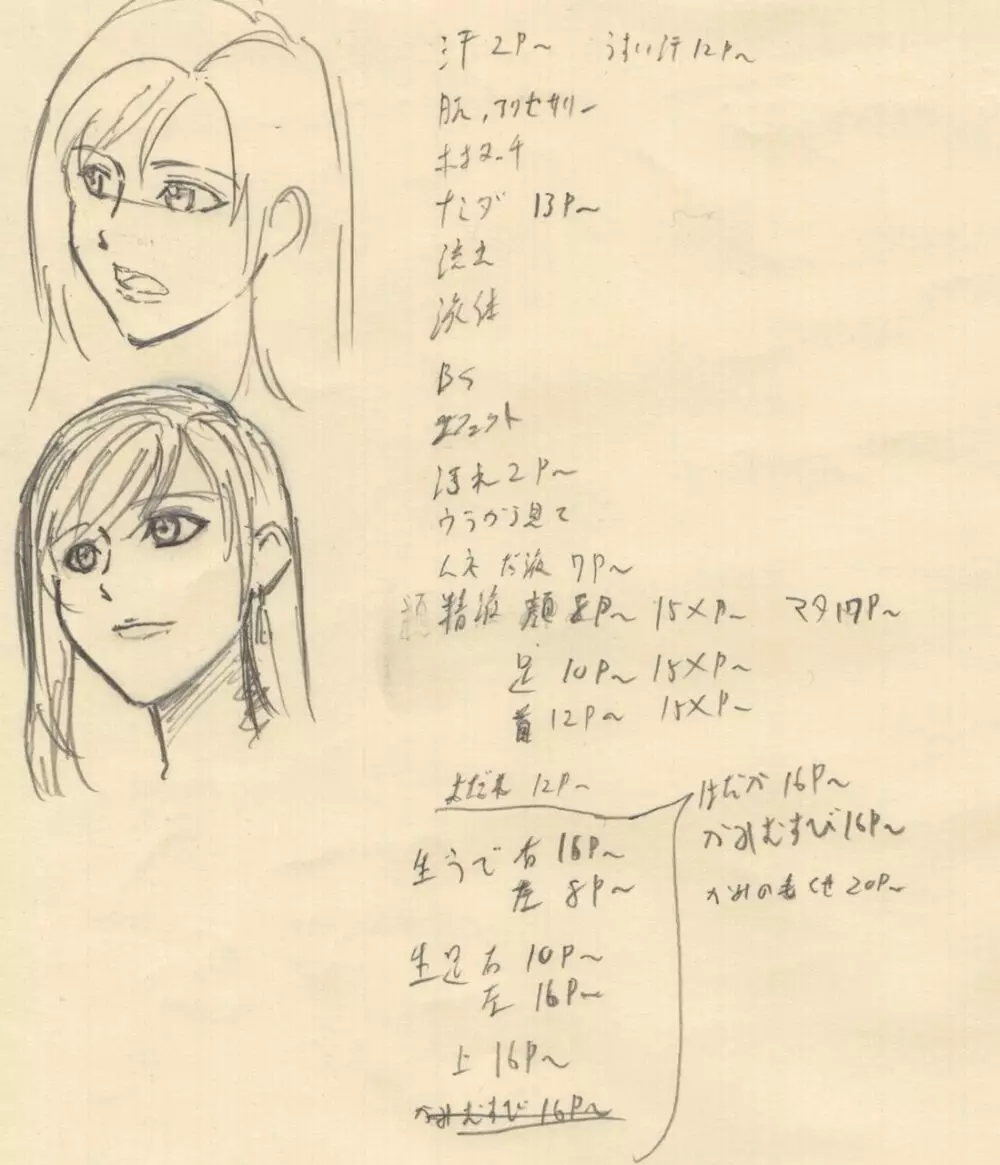 汗 2P～ うすい汗 12P～
肌、アクセサリー
ナミダ 13P～
液体
BG
エフェクト
汚れ 2P～
ウラから見て
ムネ だ液 7P～
精液 顔 8P～ 15×P～ マタ 17P～
足 10P～ 15×P～
首 12P～ 15×P～
よだれ 12P～
はだか 16P～
かみむすび 16P～
かみの毛 くせ 20P～
生うで 右 16P～
左 8P～
生足 右 10P～
左 16P～
上 16P～
かみむすび 16P～